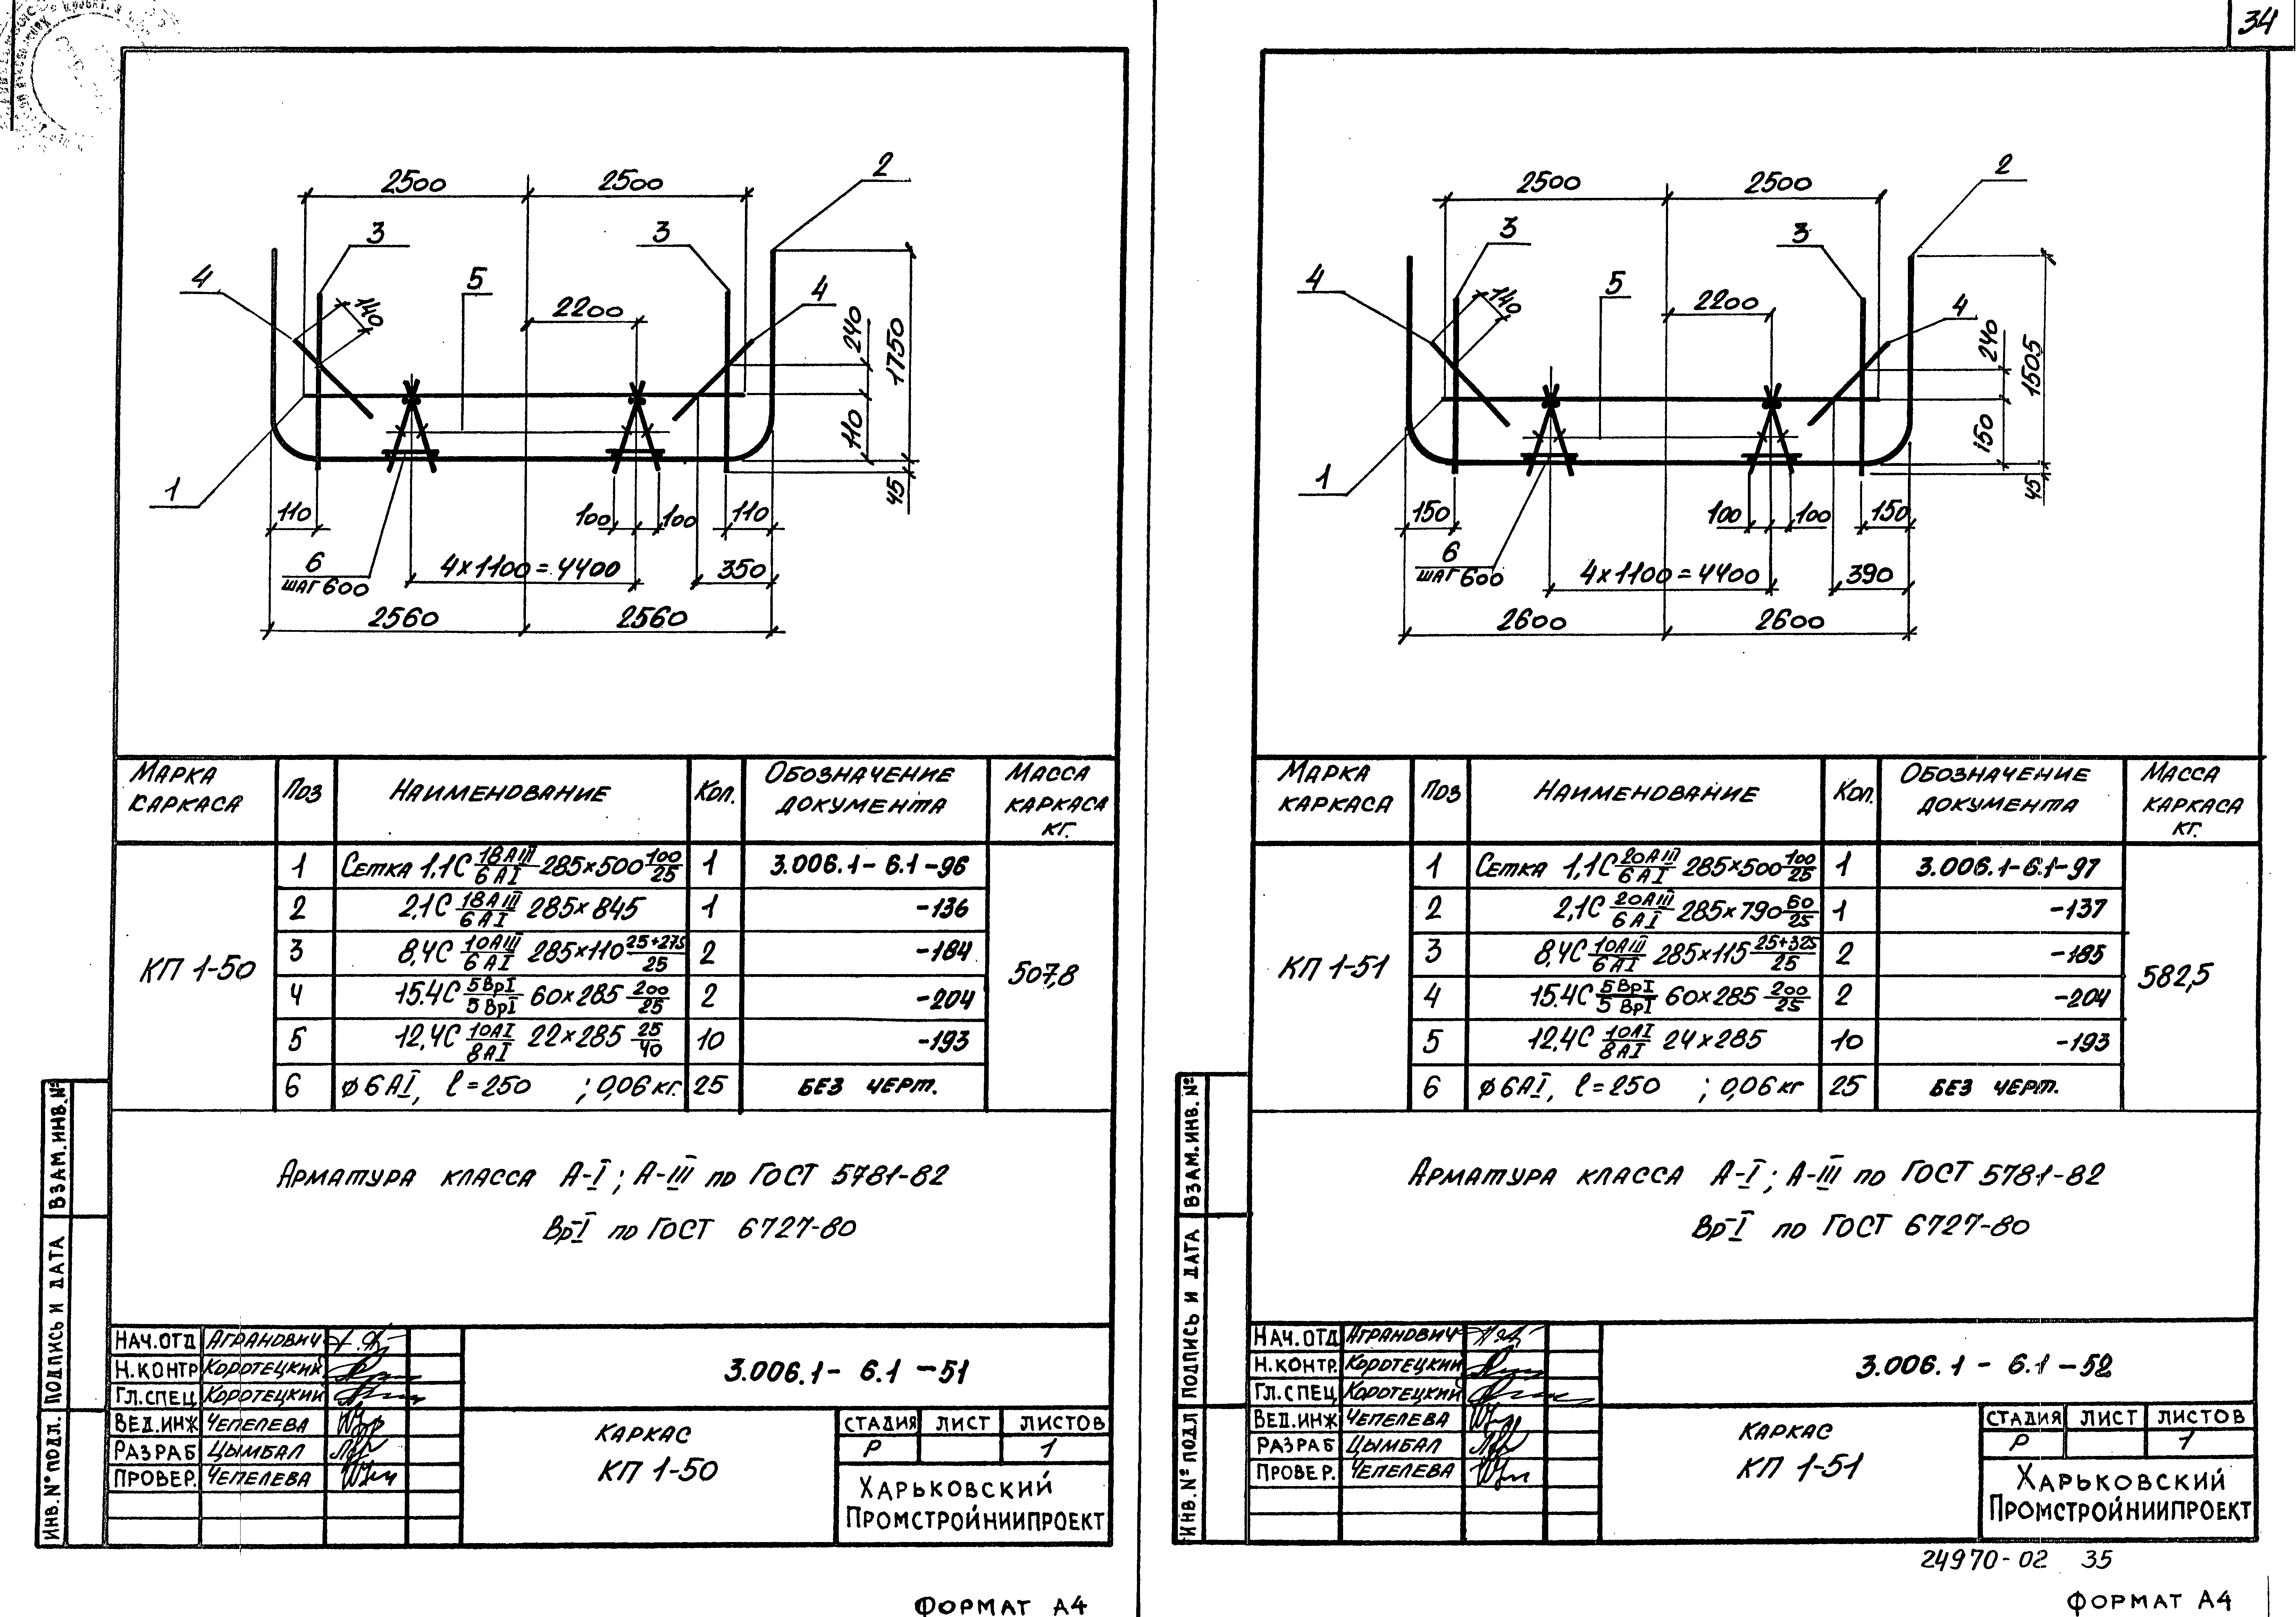 34
2500 2500
2
3 3
4 5 4
140
2200
240
1750
110
45
1
110 100 100 110
6
ШАГ 600
4×1100=4400
350
2560 2560
МАРКА КАРКАСА | ПОЗ | НАИМЕНОВАНИЕ | КОЛ. | ОБОЗНАЧЕНИЕ ДОКУМЕНТА | МАССА КАРКАСА КГ.
КП 1-50
1 | СЕТКА 1.1С 18АIII/6АI 285×500 100/25 | 1 | 3.006.1-6.1-96
2 | 2,1С 18АIII/6АI 285×845 | 1 | -136
3 | 8,4С 10АIII/6АI 285×110 25+275/25 | 2 | -184
4 | 15.4С 5ВрI/5ВрI 60×285 200/25 | 2 | -204
5 | 12,4С 10АI/8АI 22×285 25/40 | 10 | -193
6 | ø6АI, ℓ=250 ; 0,06кг. | 25 | БЕЗ ЧЕРТ.
507,8
АРМАТУРА КЛАССА А-I; А-III ПО ГОСТ 5781-82
Вр-I ПО ГОСТ 6727-80
ВЗАМ.ИНВ.№
ПОДПИСЬ И ДАТА
ИНВ.№ ПОДЛ.
НАЧ.ОТД АГРАНОВИЧ
Н.КОНТР КОРОТЕЦКИЙ
ГЛ.СПЕЦ КОРОТЕЦКИЙ
ВЕД.ИНЖ ЧЕПЕЛЕВА
РАЗРАБ ЦЫМБАЛ
ПРОВЕР. ЧЕПЕЛЕВА
3.006.1- 6.1 -51
КАРКАС
КП 1-50
СТАДИЯ ЛИСТ ЛИСТОВ
Р 1
ХАРЬКОВСКИЙ
ПРОМСТРОЙНИИПРОЕКТ
ФОРМАТ А4
2500 2500
2
3 3
4 5 4
140
2200
240
1505
150
45
1
150 100 100 150
6
ШАГ 600
4×1100=4400
390
2600 2600
МАРКА КАРКАСА | ПОЗ | НАИМЕНОВАНИЕ | КОЛ. | ОБОЗНАЧЕНИЕ ДОКУМЕНТА | МАССА КАРКАСА КГ.
КП 1-51
1 | СЕТКА 1,1С 20АIII/6АI 285×500 100/25 | 1 | 3.006.1-6.1-97
2 | 2,1С 20АIII/6АI 285×790 60/25 | 1 | -137
3 | 8,4С 10АIII/6АI 285×115 25+325/25 | 2 | -185
4 | 15.4С 5ВрI/5ВрI 60×285 200/25 | 2 | -204
5 | 12.4С 10АI/8АI 24×285 | 10 | -193
6 | ø6АI, ℓ=250 ; 0,06кг | 25 | БЕЗ ЧЕРТ.
582,5
АРМАТУРА КЛАССА А-I; А-III ПО ГОСТ 5781-82
Вр-I ПО ГОСТ 6727-80
ВЗАМ.ИНВ.№
ПОДПИСЬ И ДАТА
ИНВ.№ ПОДЛ
НАЧ.ОТД АГРАНОВИЧ
Н.КОНТР. КОРОТЕЦКИЙ
ГЛ.СПЕЦ КОРОТЕЦКИЙ
ВЕД.ИНЖ ЧЕПЕЛЕВА
РАЗРАБ ЦЫМБАЛ
ПРОВЕР. ЧЕПЕЛЕВА
3.006.1 - 6.1 -52
КАРКАС
КП 1-51
СТАДИЯ ЛИСТ ЛИСТОВ
Р 1
ХАРЬКОВСКИЙ
ПРОМСТРОЙНИИПРОЕКТ
24970-02 35
ФОРМАТ А4